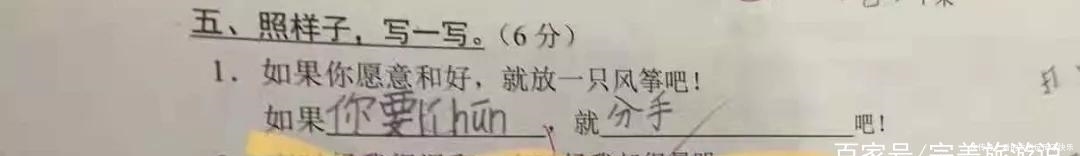 五、照样子，写一写。（6分）
1．如果你愿意和好，就放一只风筝吧！
如果你要lí hūn，就分手吧！
百家号/完美旅游说